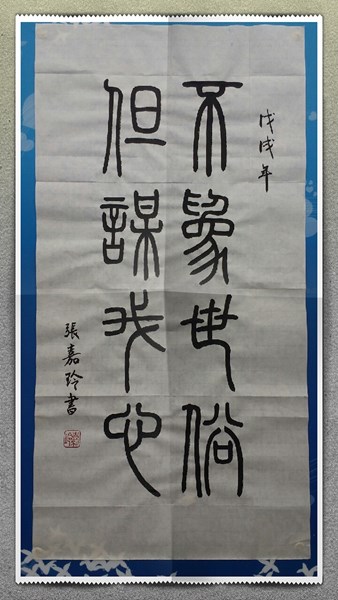 戊戌年
不象世俗
但謀我心
張嘉玲書